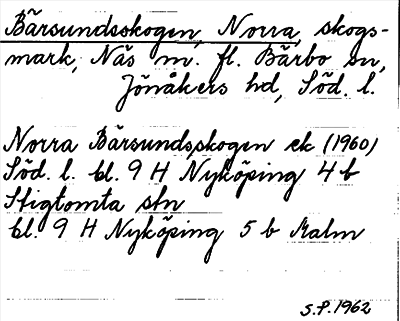 Bärsundsskogen, Norra, skogs-
mark, Näs m. fl. Bärbo sn,
Jönåkers hd, Söd. l.
Norra Bärsundsskogen ek (1960)
Söd. l. bl. 9 H Nyköping 4 b
Stigtomta sfn
bl. 9 H Nyköping 5 b Malm
S.P. 1962